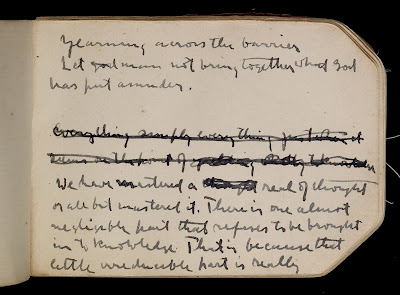 Yearning across the barrier
Let god man not bring together what God
has put asunder.
Everything simply everything just when it
seems on the point of
We have mastered a real of thought
or all but mastered it. There is one almost
negligible part that refuses to be brought
in to knowledge. That is because that
little irreducible part is really